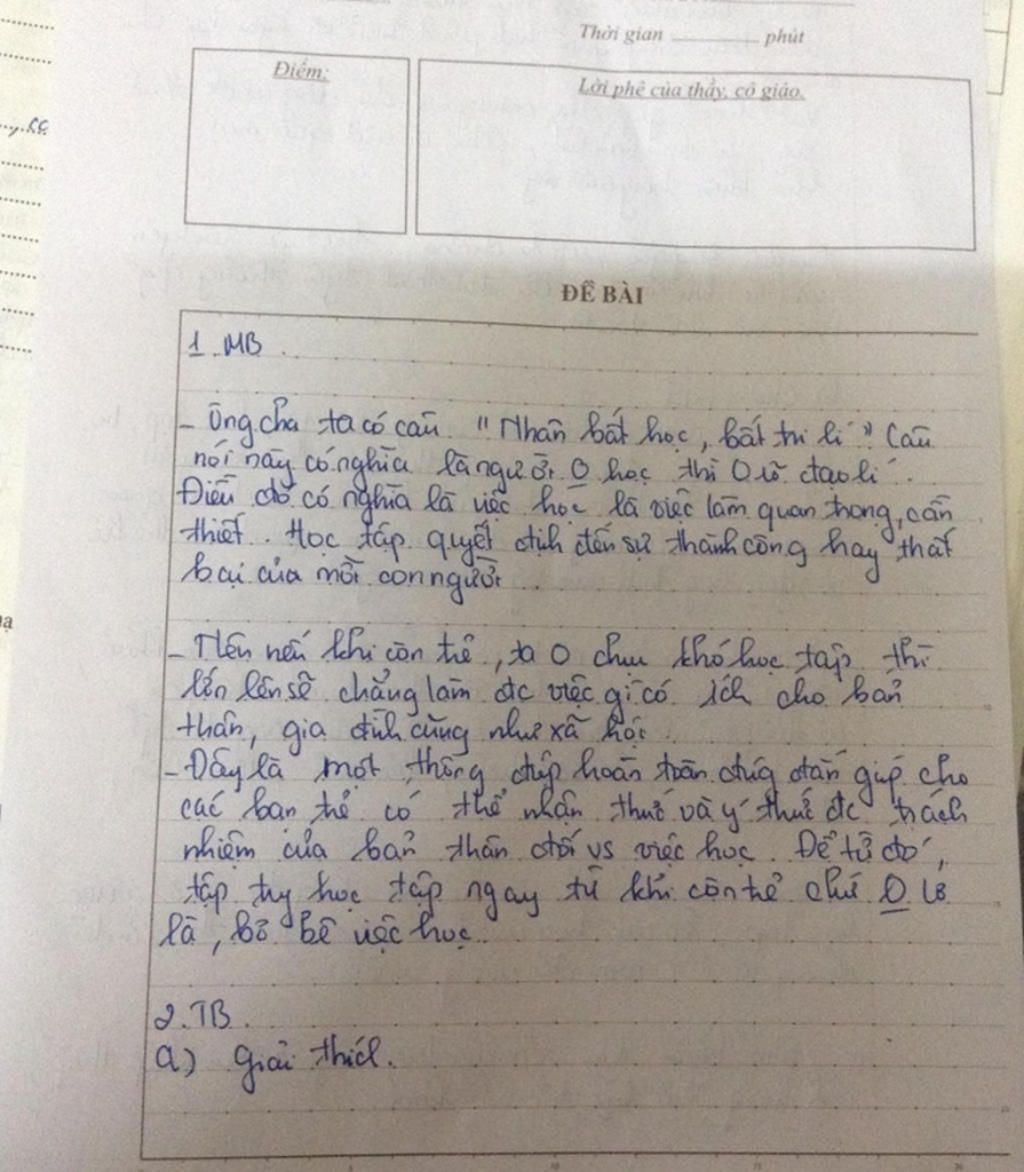 Thời gian ________ phút
Điểm:
Lời phê của thầy, cô giáo.
ĐỀ BÀI
1. MB.
- Ông cha ta có câu "Nhân bất học, bất tri lí". Câu
nói này có nghĩa là người 0 học thì 0 rõ đạo lí.
Điều đó có nghĩa là việc học là việc làm quan trọng, cần
thiết. Học tập quyết định đến sự thành công hay thất
bại của mỗi con người.
- Nên nếu khi còn trẻ, ta 0 chịu khó học tập thì
lớn lên sẽ chẳng làm đc việc gì có ích cho bản
thân, gia đình cũng như xã hội.
- Đây là một thông điệp hoàn toàn đúg đắn giúp cho
các bạn trẻ có thể nhận thức và ý thức đc trách
nhiệm của bản thân đối vs việc học. Để từ đó,
tập trg học tập ngay từ khi còn trẻ chứ 0 lơ
là, bỏ bê việc học.
2. TB.
a) Giải thích.